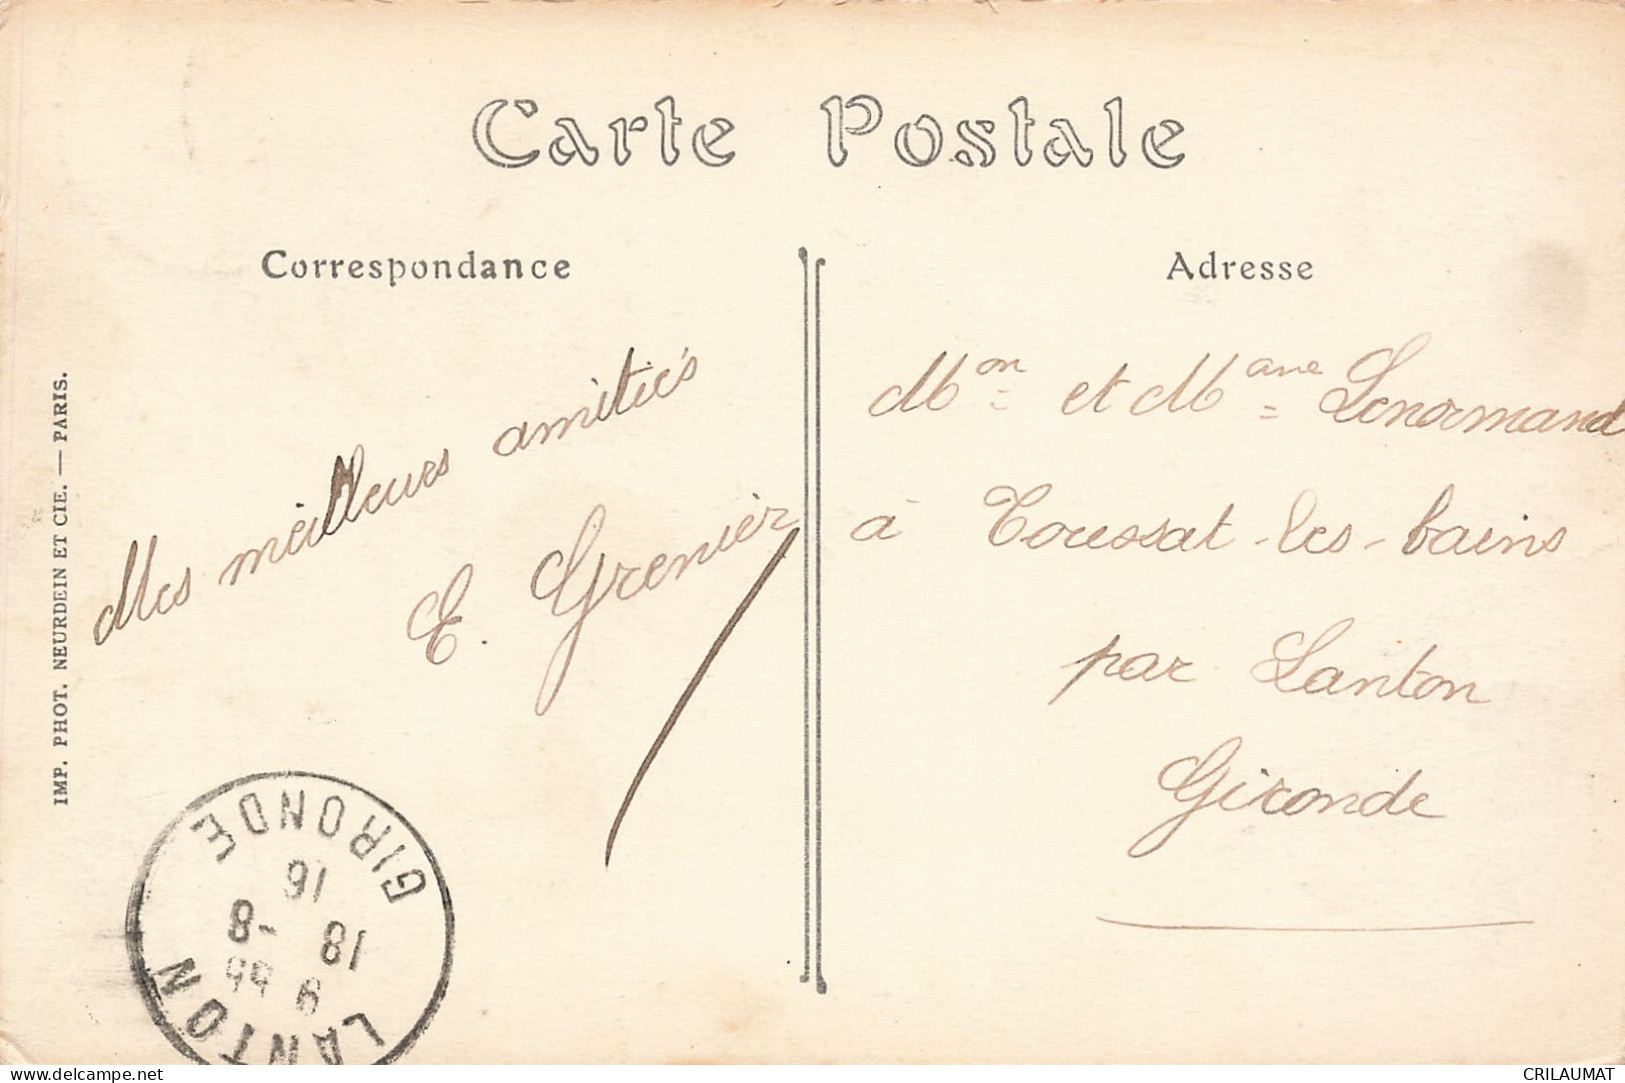 Carte Postale
Correspondance
Adresse
Mes meilleurs amitiés
E. Grenier
Mon et Mame Lenormand
à Toussat-les-bains
par Lanton
Gironde
IMP. PHOT. NEURDEIN ET CIE. — PARIS.
LANTON
9 55
18 -8
16
GIRONDE
www.delcampe.net
CRILAUMAT